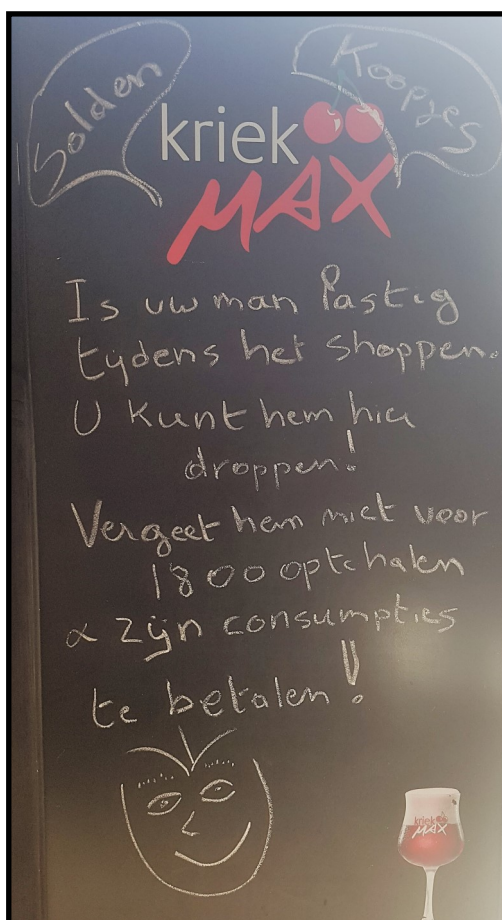 Solden
Koopjes
kriek
MAX
Is uw man lastig
tijdens het shoppen.
U kunt hem hier
droppen!
Vergeet hem niet voor
1800 optehalen
& zijn consumpties
te betalen!!
kriek
MAX